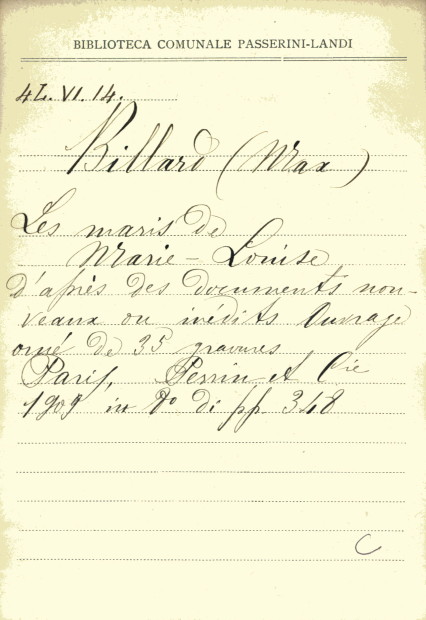 BIBLIOTECA COMUNALE PASSERINI-LANDI
4L. VI. 14.
Billard (Max)
Les maris de
Marie-Louise
d'après des documents nou-
veaux ou inédits Ouvrage
orné de 35 gravures
Paris, Perrin et Cie
1909 in 8º di pp. 348
C